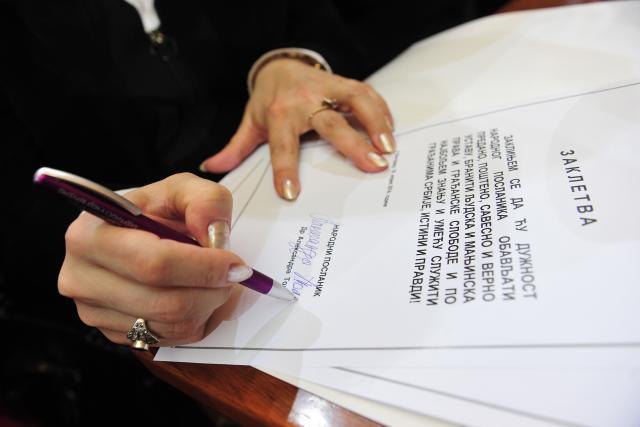 ЗАКЛЕТВА
ЗАКЛИЊЕМ СЕ ДА ЋУ ДУЖНОСТ
НАРОДНОГ ПОСЛАНИКА ОБАВЉАТИ
ПРЕДАНО, ПОШТЕНО, САВЕСНО И ВЕРНО
УСТАВУ, БРАНИТИ ЉУДСКА И МАЊИНСКА
ПРАВА И ГРАЂАНСКЕ СЛОБОДЕ И ПО
НАЈБОЉЕМ ЗНАЊУ И УМЕЋУ СЛУЖИТИ
ГРАЂАНИМА СРБИЈЕ, ИСТИНИ И ПРАВДИ!
НАРОДНИ ПОСЛАНИК
Др Александра